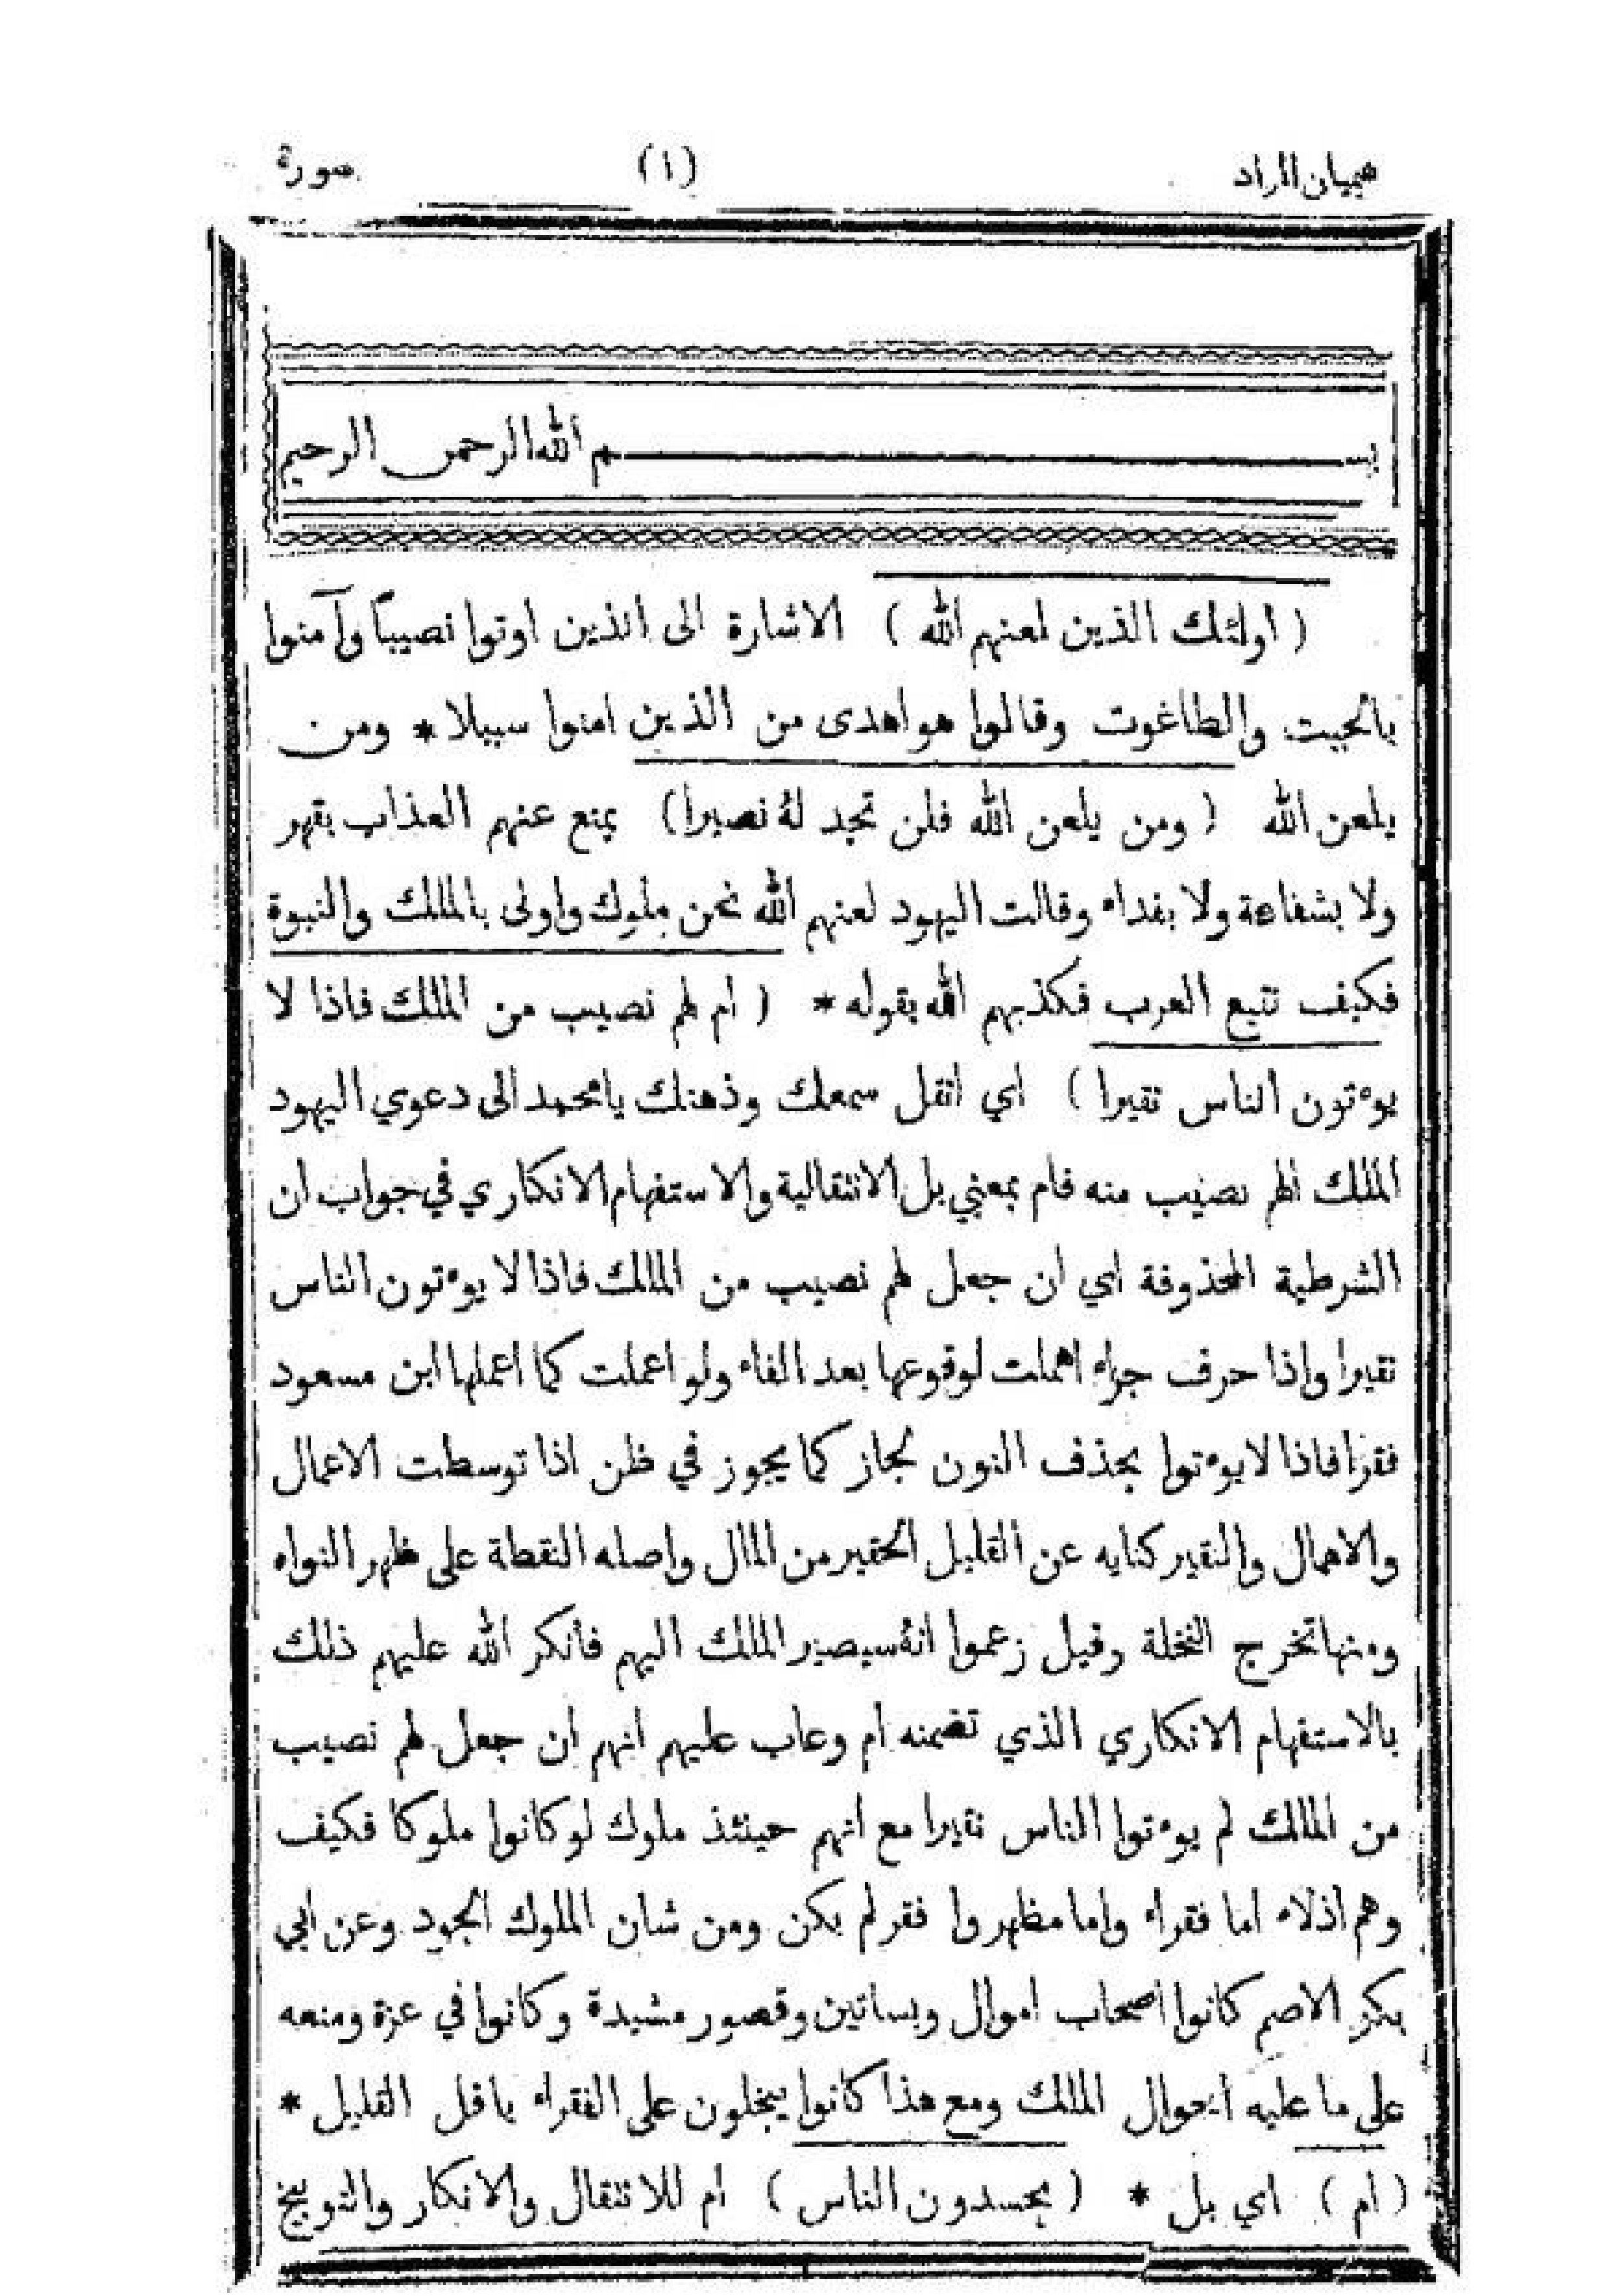 هميان الزاد (١) سورة
بسم الله الرحمن الرحيم
( اولئك الذين لعنهم الله ) الاشارة الى الذين اوتوا نصيباً وآمنوا
بالجبت والطاغوت وقالوا هو اهدى من الذين امنوا سبيلا * ومن
يلعن الله ( ومن يلعن الله فلن تجد لهُ نصيرا ) يمنع عنهم العذاب بقهر
ولا بشفاعة ولا بفداء وقالت اليهود لعنهم الله نحن ملوك واولى بالملك والنبوة
فكيف نتبع العرب فكذبهم الله بقوله * ( ام لهم نصيب من الملك فاذا لا
يوءتون الناس نقيرا ) اي انقل سمعك وذهنك يا محمد الى دعوي اليهود
الملك الهم نصيب منه فام بمعني بل الانتقالية والاستفهام الانكاري في جواب ان
الشرطية المحذوفة اي ان جعل لهم نصيب من الملك فاذا لا يوءتون الناس
نقيرا واذا حرف جزاء اهملت لوقوعها بعد الفاء ولو اعملت كما اعملها ابن مسعود
فقرا فاذا لا يوءتوا بحذف النون لجاز كما يجوز في ظن اذا توسطت الاعمال
والاهمال والنقير كنايه عن القليل الحقير من المال واصله النقطة على ظهر النواه
ومنها تخرج النخلة وقيل زعموا انهُ سيصير الملك اليهم فأنكر الله عليهم ذلك
بالاستفهام الانكاري الذي تضمنه ام وعاب عليهم انهم ان جعل لهم نصيب
من الملك لم يوءتوا الناس نقيرا مع انهم حينئذ ملوك لو كانوا ملوكا فكيف
وهم اذلاء اما فقراء واما مظهروا فقر لم يكن ومن شان الملوك الجود وعن ابي
بكر الاصم كانوا اصحاب اموال وبساتين وقصور مشيدة وكانوا في عزة ومنعه
على ما عليه احوال الملك ومع هذا كانوا يبخلون على الفقراء باقل القليل *
( ام ) اي بل * ( يحسدون الناس ) ام للانتقال والانكار والتوبيخ